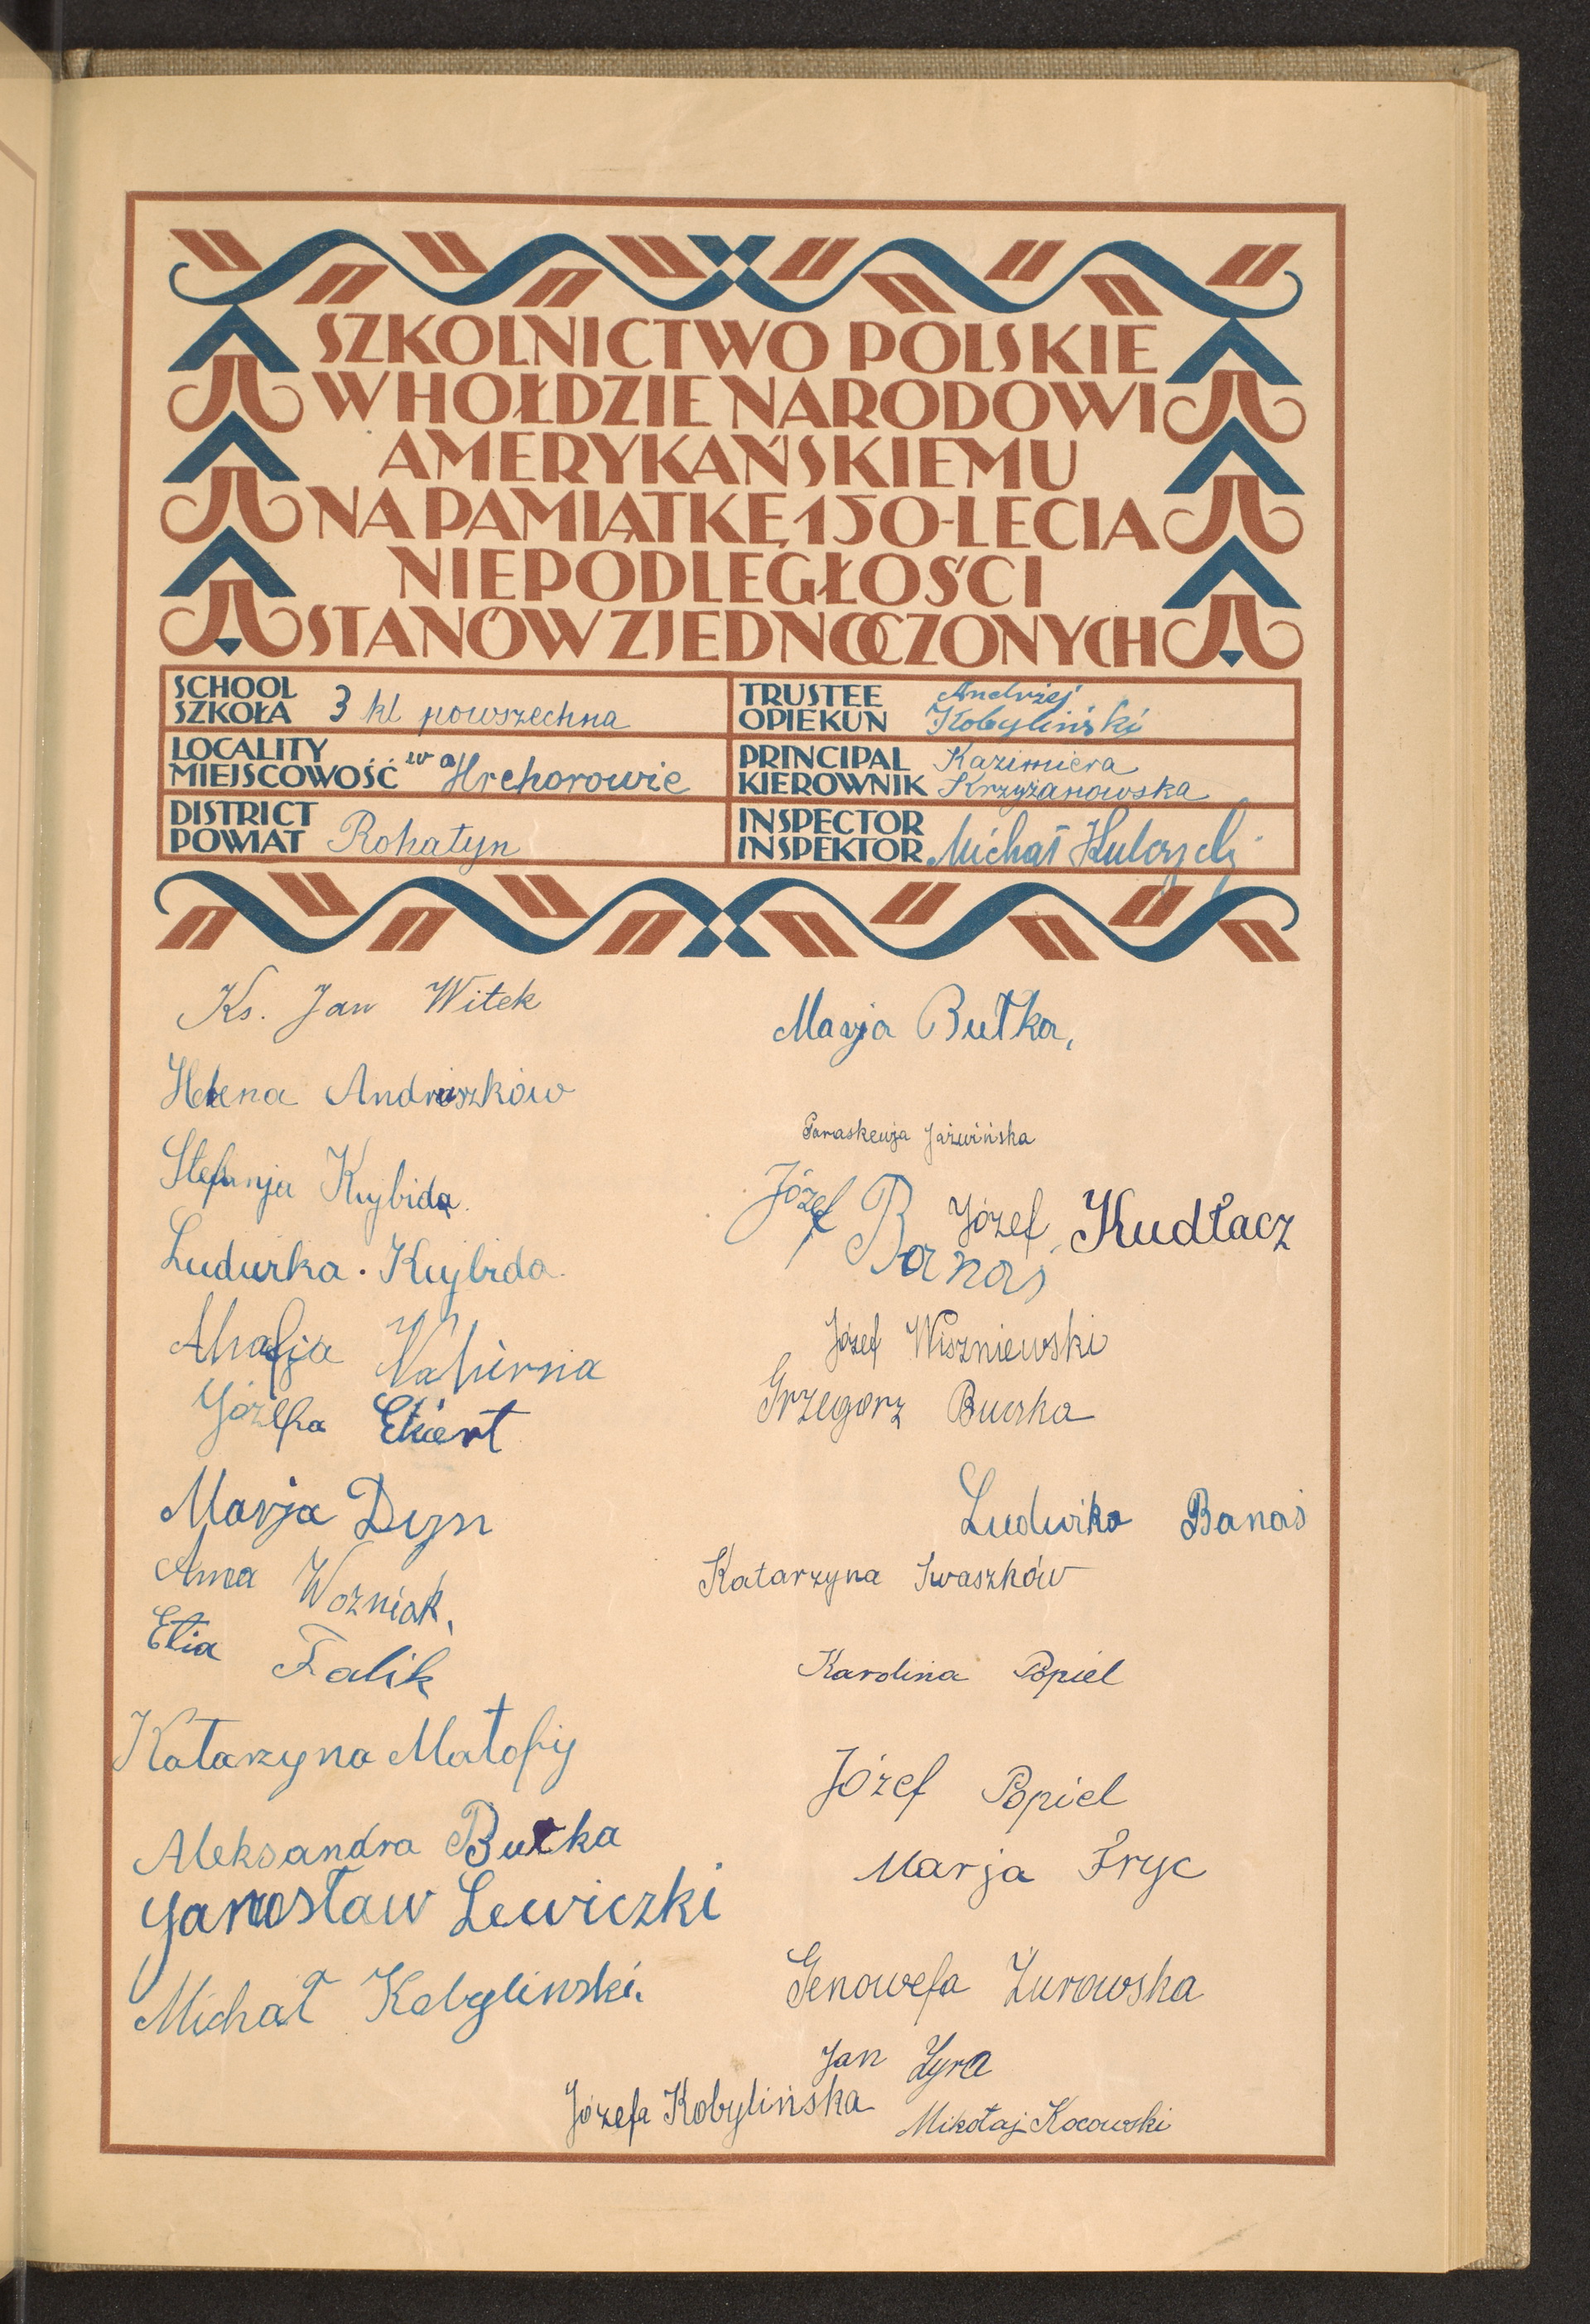 SZKOLNICTWO POLSKIE
W HOŁDZIE NARODOWI
AMERYKAŃSKIEMU
NA PAMIĄTKĘ 150-LECIA
NIEPODLEGŁOŚCI
STANÓW ZJEDNOCZONYCH
SCHOOL
SZKOŁA 3 kl powszechna
LOCALITY
MIEJSCOWOŚĆ w Hrehorowie
DISTRICT
POWIAT Rohatyn
TRUSTEE
OPIEKUN Andrzej Kobyliński
PRINCIPAL
KIEROWNIK Kazimiera Krzyżanowska
INSPECTOR
INSPEKTOR Michał
Ks. Jan Witek
Helena Andruszków
Stefanja Kujbida.
Ludwika Kujbida.
Ahafja
Józefka Ekiert
Marja Dyn
Anna Wozniak.
Etia Falik
Katarzyna Matofij
Aleksandra Butka
Jarosław Lewiczki
Michał Kobylinski.
Marja Butka,
Paraskewja Jaźwińska
Józef Banaś
Józef Kudłacz
Józef Wiszniewski
Grzegorz Burka
Ludwika Banaś
Katarzyna Iwaszków
Karolina Popiel
Józef Popiel
Marja Fryc
Genowefa Żurowska
Jan Żyra
Józefa Kobylińska
Mikołaj Kocowski